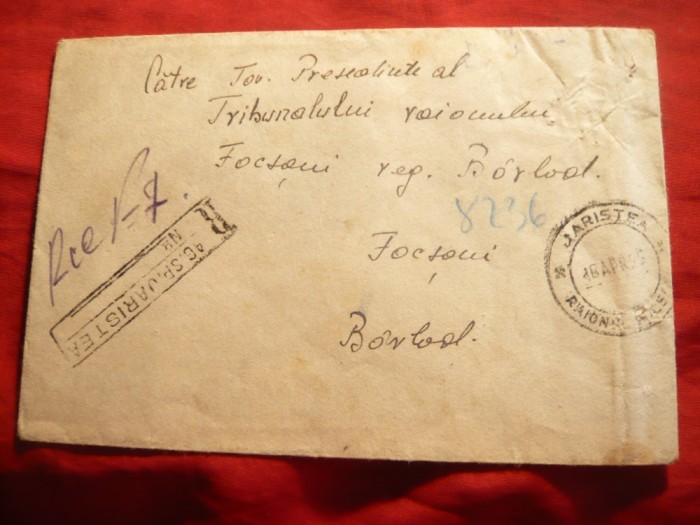 Către Tov. Presedinte al
Tribunalului raionului
Focșani reg. Bârlad.
8236
Focșani
Bârlad.
AG.SP. JARISTEA
NR
JARISTEA
APR
RAION